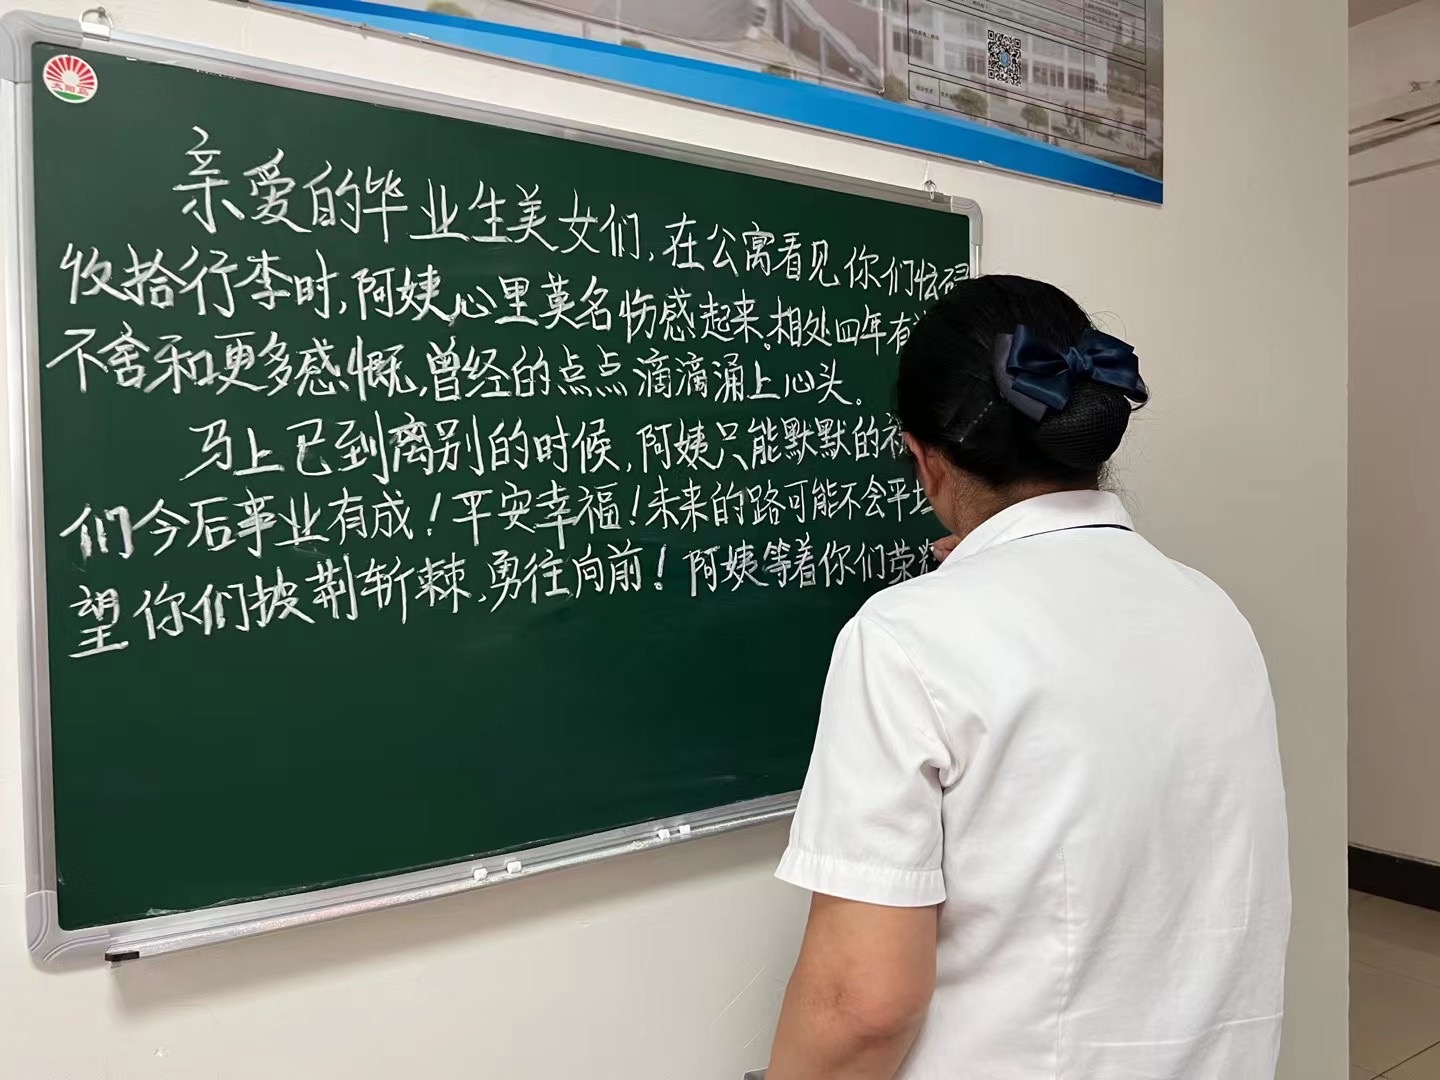 太阳岛
亲爱的毕业生美女们,在公寓看见你们忙碌
收拾行李时,阿姨心里莫名伤感起来。相处四年有
不舍和更多感慨,曾经的点点滴滴涌上心头。
马上已到离别的时候,阿姨只能默默的祝
们今后事业有成!平安幸福!未来的路可能不会平坦
望你们披荆斩棘、勇往向前!阿姨等着你们荣耀